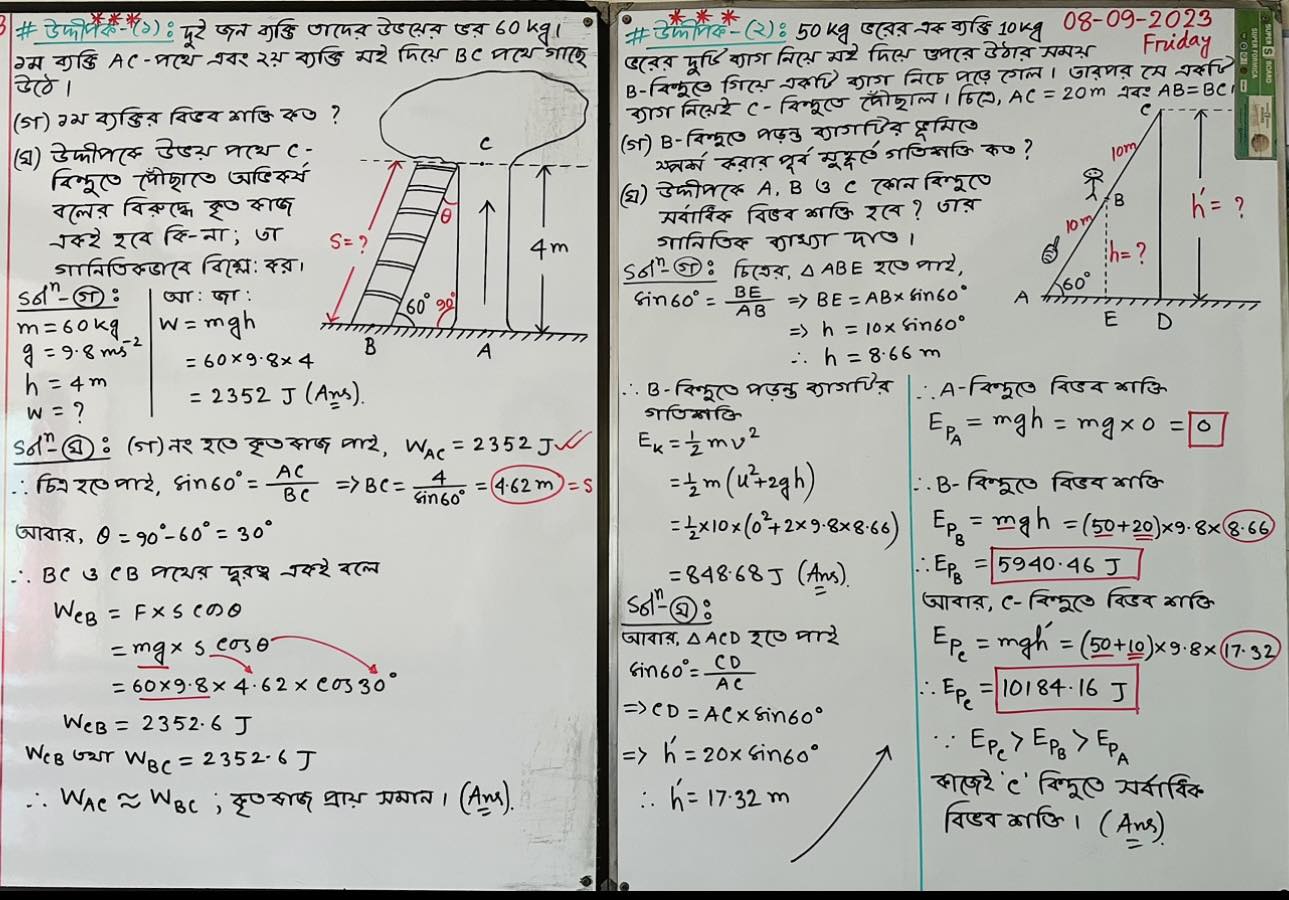 # উদ্দীপক-(১): দুই জন ব্যক্তি তাদের উভয়ের ভর 60 kg।
১ম ব্যক্তি AC-পথে এবং ২য় ব্যক্তি মই দিয়ে BC পথে গাছে
উঠে।
(গ) ১ম ব্যক্তির বিভব শক্তি কত ?
(ঘ) উদ্দীপকে উভয় পথে C-
বিন্দুতে পৌঁছাতে অভিকর্ষ
বলের বিরুদ্ধে কৃত কাজ
একই হবে কি-না; তা
গানিতিকভাবে বিশ্লে: কর।
C
θ
S = ?
4m
60°
90°
B
A
Solⁿ-(গ):
m = 60 kg
g = 9.8 ms⁻²
h = 4m
w = ?
আ: জা:
W = mgh
= 60×9.8×4
= 2352 J (Ans).
Solⁿ-(ঘ): (গ) নং হতে কৃতকাজ পাই, W_AC = 2352 J
∴ চিত্র হতে পাই, Sin60° = AC/BC ⇒ BC = 4/Sin60° = 4.62 m = S
আবার, θ = 90°-60° = 30°
∴ BC ও CB পথের দূরত্ব একই বলে
W_CB = F × S cosθ
= mg × S cosθ
= 60×9.8×4.62×cos30°
W_CB = 2352.6 J
W_CB তথা W_BC = 2352.6 J
∴ W_AC ≈ W_BC ; কৃতকাজ প্রায় সমান। (Ans).
# উদ্দীপক-(২): 50 kg ভরের এক ব্যক্তি 10kg
08-09-2023
Friday
ভরের দুটি ব্যাগ নিয়ে মই দিয়ে উপরে উঠার সময়
B-বিন্দুতে গিয়ে একটি ব্যাগ নিচে পড়ে গেল। তারপর সে একটি
ব্যাগ নিয়েই C-বিন্দুতে পৌঁছাল। চিত্রে, AC = 20m এবং AB=BC।
(গ) B-বিন্দুতে পড়ন্ত ব্যাগটির ভূমিতে
স্পর্শ করার পূর্ব মুহূর্তে গতিশক্তি কত?
(ঘ) উদ্দীপকে A, B ও C কোন বিন্দুতে
সর্বাধিক বিভব শক্তি হবে? তার
গানিতিক ব্যাখ্যা দাও।
SUPER S BOARD
SUPER FORMICA
C
10m
B
10m
h = ?
h′ = ?
60°
A
E
D
Solⁿ-(গ): চিত্রের, △ABE হতে পাই,
Sin60° = BE/AB ⇒ BE = AB×Sin60°
⇒ h = 10×Sin60°
∴ h = 8.66 m
∴ B-বিন্দুতে পড়ন্ত ব্যাগটির
গতিশক্তি
E_K = ½mv²
= ½m(u²+2gh)
= ½×10×(0²+2×9.8×8.66)
= 848.68 J (Ans).
Solⁿ-(ঘ):
আবার, △ACD হতে পাই
Sin60° = CD/AC
⇒ CD = AC×Sin60°
⇒ h′ = 20×Sin60°
∴ h′ = 17.32 m
∴ A-বিন্দুতে বিভব শক্তি
E_PA = mgh = mg×0 = 0
∴ B-বিন্দুতে বিভব শক্তি
E_PB = mgh = (50+20)×9.8×8.66
∴ E_PB = 5940.46 J
আবার, C-বিন্দুতে বিভব শক্তি
E_PC = mgh′ = (50+10)×9.8×17.32
∴ E_PC = 10184.16 J
∵ E_PC > E_PB > E_PA
কাজেই 'C' বিন্দুতে সর্বাধিক
বিভব শক্তি। (Ans)